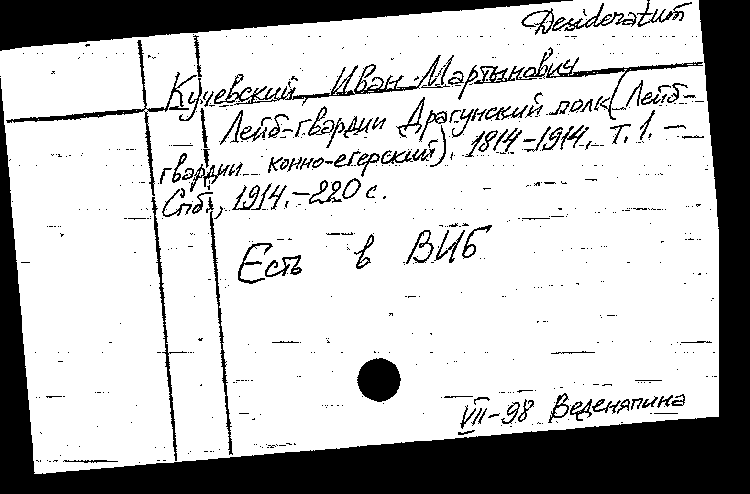 Desideratum
Кучевский, Иван Мартынович
Лейб-гвардии Драгунский полк (Лейб-
гвардии конно-егерский). 1814-1914. Т. 1. -
Спб., 1914. - 220 с.
Есть в ВИБ
VII-98 Веденяпина